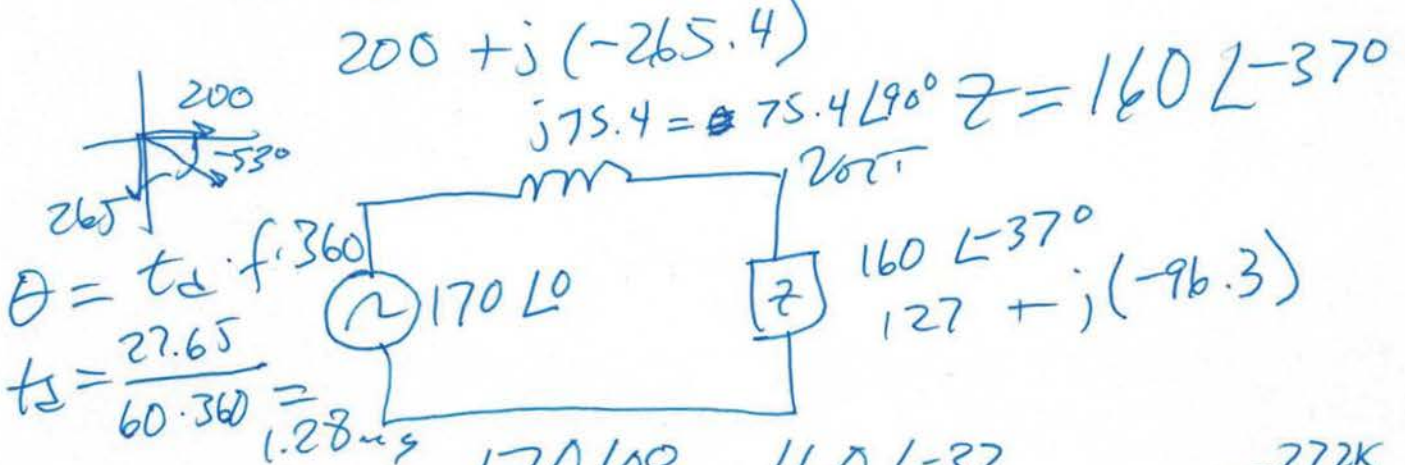 200 + j (-265.4)
200
-53°
265
j75.4 = 75.4∠90°
Z = 160 ∠-37°
θ = td · f · 360
170 ∠0
Z
160 ∠-37°
127 + j(-96.3)
td = 27.65 / 60·360 = 1.28ms